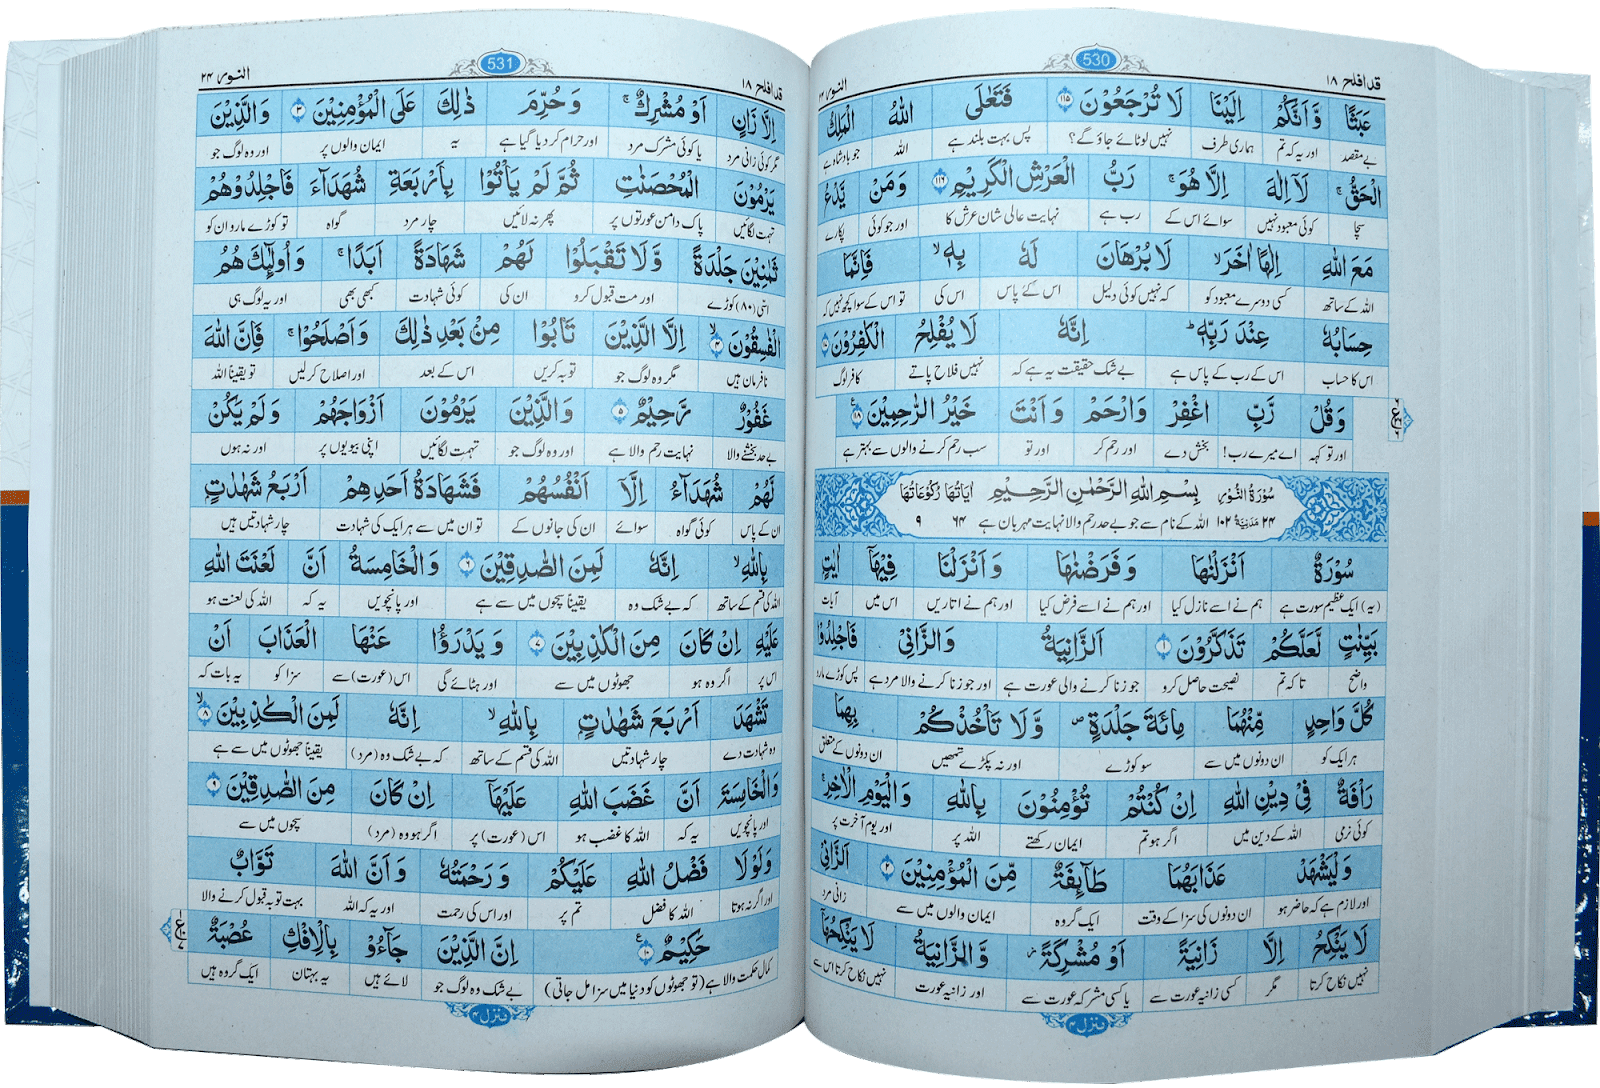 قدافلح ١٨
530
النور ٢٤
عَبَثًا وَّاَنَّكُمْ اِلَيْنَا لَا تُرْجَعُوْنَ ۝١١٥ فَتَعٰلَى اللّٰهُ الْمَلِكُ
بے مقصد اور یہ کہ تم ہماری طرف نہیں لوٹائے جاؤ گے؟ پس بہت بلند ہے اللہ جو بادشاہ ہے
الْحَقُّ ۚ لَاۤ اِلٰهَ اِلَّا هُوَ ۚ رَبُّ الْعَرْشِ الْكَرِيْمِ ۝١١٦ وَمَنْ يَّدْعُ
سچا کوئی معبود نہیں سوائے اس کے رب ہے نہایت عالی شان عرش کا اور جو کوئی پکارے
مَعَ اللّٰهِ اِلٰهًا اٰخَرَ ۙ لَا بُرْهَانَ لَهٗ بِهٖ ۙ فَاِنَّمَا
اللہ کے ساتھ کسی دوسرے معبود کو کہ نہیں کوئی دلیل اس کے پاس اس کی تو اس کے سوا کچھ نہیں کہ
حِسَابُهٗ عِنْدَ رَبِّهٖ ؕ اِنَّهٗ لَا يُفْلِحُ الْكٰفِرُوْنَ
اس کا حساب اس کے رب کے پاس ہے بے شک حقیقت یہ ہے کہ نہیں فلاح پاتے کافر لوگ
وَقُلْ رَّبِّ اغْفِرْ وَارْحَمْ وَاَنْتَ خَيْرُ الرّٰحِمِيْنَ ۝١١٨
اور تو کہہ اے میرے رب! بخش دے اور رحم کر اور تو سب رحم کرنے والوں سے بہتر ہے
سُوْرَةُ النُّوْرِ بِسْمِ اللّٰهِ الرَّحْمٰنِ الرَّحِيْمِ اٰيَاتُهَا رُكُوْعَاتُهَا
٢٤ مَدَنِيَّةٌ ١٠٢ اللہ کے نام سے جو بے حد رحم والا نہایت مہربان ہے ٦٤ ٩
سُوْرَةٌ اَنْزَلْنٰهَا وَفَرَضْنٰهَا وَاَنْزَلْنَا فِيْهَاۤ اٰيٰتٍۭ
(یہ) ایک عظیم سورت ہے ہم نے اسے نازل کیا اور ہم نے اسے فرض کیا اور ہم نے اتاریں اس میں آیات
بَيِّنٰتٍ لَّعَلَّكُمْ تَذَكَّرُوْنَ ۝١ اَلزَّانِيَةُ وَالزَّانِيْ فَاجْلِدُوْا
واضح تاکہ تم نصیحت حاصل کرو جو زنا کرنے والی عورت ہے اور جو زنا کرنے والا مرد ہے پس کوڑے مارو
كُلَّ وَاحِدٍ مِّنْهُمَا مِائَةَ جَلْدَةٍ ۪ وَّلَا تَاْخُذْكُمْ بِهِمَا
ہر ایک کو ان دونوں میں سے سو کوڑے اور نہ پکڑے تمہیں ان دونوں کے متعلق
رَاْفَةٌ فِيْ دِيْنِ اللّٰهِ اِنْ كُنْتُمْ تُؤْمِنُوْنَ بِاللّٰهِ وَالْيَوْمِ الْاٰخِرِ ۚ
کوئی نرمی اللہ کے دین میں اگر ہو تم ایمان رکھتے اللہ پر اور یوم آخرت پر
وَلْيَشْهَدْ عَذَابَهُمَا طَآئِفَةٌ مِّنَ الْمُؤْمِنِيْنَ ۝٢ اَلزَّانِيْ
اور لازم ہے کہ حاضر ہو ان دونوں کی سزا کے وقت ایک گروہ ایمان والوں میں سے زانی مرد
لَا يَنْكِحُ اِلَّا زَانِيَةً اَوْ مُشْرِكَةً ۡ وَّالزَّانِيَةُ لَا يَنْكِحُهَاۤ
نہیں نکاح کرتا مگر کسی زانیہ عورت سے یا کسی مشرکہ عورت سے اور زانیہ عورت نہیں نکاح کرتا اس سے
منزل ٤
قدافلح ١٨
531
النور ٢٤
اِلَّا زَانٍ اَوْ مُشْرِكٌ ۚ وَحُرِّمَ ذٰلِكَ عَلَى الْمُؤْمِنِيْنَ ۝٣ وَالَّذِيْنَ
مگر کوئی زانی مرد یا کوئی مشرک مرد اور حرام کر دیا گیا ہے یہ ایمان والوں پر اور وہ لوگ جو
يَرْمُوْنَ الْمُحْصَنٰتِ ثُمَّ لَمْ يَاْتُوْا بِاَرْبَعَةِ شُهَدَآءَ فَاجْلِدُوْهُمْ
تہمت لگائیں پاک دامن عورتوں پر پھر نہ لائیں چار مرد گواہ تو کوڑے مارو ان کو
ثَمٰنِيْنَ جَلْدَةً وَّلَا تَقْبَلُوْا لَهُمْ شَهَادَةً اَبَدًا ۚ وَاُولٰٓئِكَ هُمُ
اسی (۸۰) کوڑے اور مت قبول کرو ان کی کوئی شہادت کبھی بھی اور یہ لوگ ہی
الْفٰسِقُوْنَ ۝٤ اِلَّا الَّذِيْنَ تَابُوْا مِنْۢ بَعْدِ ذٰلِكَ وَاَصْلَحُوْا ۚ فَاِنَّ اللّٰهَ
نافرمان ہیں مگر وہ لوگ جو توبہ کریں اس کے بعد اور اصلاح کر لیں تو یقیناً اللہ
غَفُوْرٌ رَّحِيْمٌ ۝٥ وَالَّذِيْنَ يَرْمُوْنَ اَزْوَاجَهُمْ وَلَمْ يَكُنْ
بے حد بخشنے والا نہایت رحم والا ہے اور وہ لوگ جو تہمت لگائیں اپنی بیویوں پر اور نہ ہوں
لَّهُمْ شُهَدَآءُ اِلَّاۤ اَنْفُسُهُمْ فَشَهَادَةُ اَحَدِهِمْ اَرْبَعُ شَهٰدٰتٍۭ
ان کے پاس کوئی گواہ سوائے ان کی جانوں کے تو ان میں سے ہر ایک کی شہادت چار شہادتیں ہیں
بِاللّٰهِ ۙ اِنَّهٗ لَمِنَ الصّٰدِقِيْنَ ۝٦ وَالْخَامِسَةُ اَنَّ لَعْنَتَ اللّٰهِ
اللہ کی قسم کے ساتھ کہ بے شک وہ یقیناً سچوں میں سے ہے اور پانچویں یہ کہ اللہ کی لعنت ہو
عَلَيْهِ اِنْ كَانَ مِنَ الْكٰذِبِيْنَ ۝٧ وَيَدْرَؤُا عَنْهَا الْعَذَابَ اَنْ
اس پر اگر وہ ہو جھوٹوں میں سے اور ہٹائے گی اس (عورت) سے سزا کو یہ بات کہ
تَشْهَدَ اَرْبَعَ شَهٰدٰتٍۭ بِاللّٰهِ ۙ اِنَّهٗ لَمِنَ الْكٰذِبِيْنَ ۝٨
وہ شہادت دے چار شہادتیں اللہ کی قسم کے ساتھ کہ بے شک وہ (مرد) یقیناً جھوٹوں میں سے ہے
وَالْخَامِسَةَ اَنَّ غَضَبَ اللّٰهِ عَلَيْهَاۤ اِنْ كَانَ مِنَ الصّٰدِقِيْنَ ۝٩
اور پانچویں یہ کہ اللہ کا غضب ہو اس (عورت) پر اگر ہو وہ (مرد) سچوں میں سے
وَلَوْلَا فَضْلُ اللّٰهِ عَلَيْكُمْ وَرَحْمَتُهٗ وَاَنَّ اللّٰهَ تَوَّابٌ
اور اگر نہ ہوتا اللہ کا فضل تم پر اور اس کی رحمت اور یہ کہ اللہ بہت توبہ قبول کرنے والا
حَكِيْمٌ ۝١٠ اِنَّ الَّذِيْنَ جَآءُوْ بِالْاِفْكِ عُصْبَةٌ
کمال حکمت والا ہے (تو جھوٹوں کو دنیا میں سزا مل جاتی) بے شک وہ لوگ جو لائے ہیں یہ بہتان ایک گروہ ہیں
منزل ٤